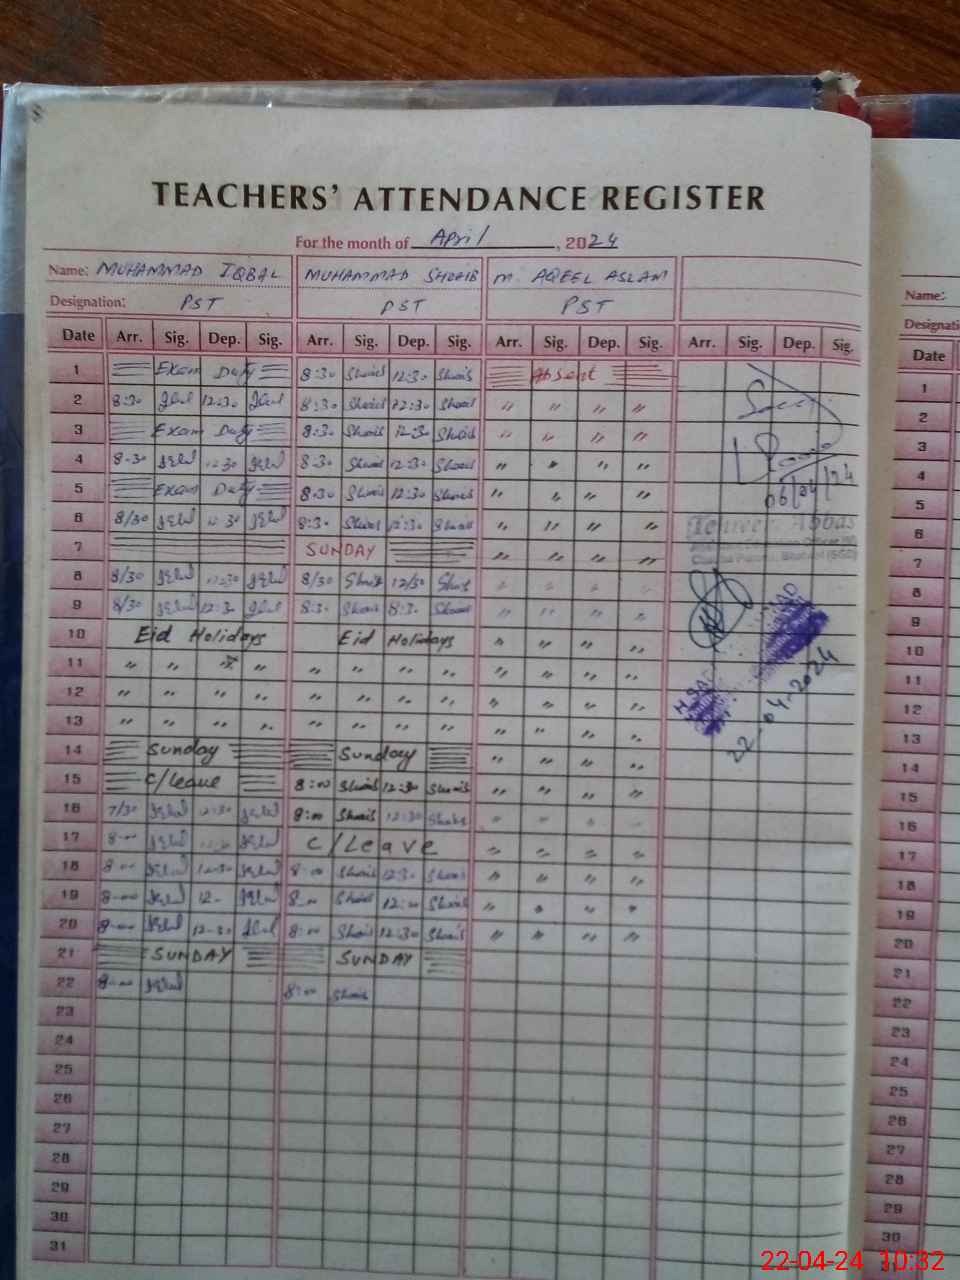 TEACHERS' ATTENDANCE REGISTER
For the month of April, 2024
Name: MUHAMMAD IQBAL MUHAMMAD SHOAIB M. AQEEL ASLAM Name:
Designation: PST PST PST
Date Arr. Sig. Dep. Sig. Arr. Sig. Dep. Sig. Arr. Sig. Dep. Sig. Arr. Sig. Dep. Sig. Date
1 Exam Duty 8:30 Shoaib 12:30 Shoaib Absent 1
2 8:30 Iqbal 12:30 Iqbal 8:30 Shoaib 12:30 Shoaib " " " " 2
3 Exam Duty 8:30 Shoaib 12:30 Shoaib " " " " 3
4 8-30 Iqbal 12:30 Iqbal 8:30 Shoaib 12:30 Shoaib " " " " 4
5 Exam Duty 8:30 Shoaib 12:30 Shoaib " " " " 06/04/24 5
6 8/30 Iqbal 12:30 Iqbal 8:30 Shoaib 12:30 Shoaib " " " " Abbas 6
7 SUNDAY " " " " 7
8 8/30 Iqbal 12:30 Iqbal 8/30 Shoaib 12/30 Shoaib " " " " 8
9 8/30 Iqbal 12:30 Iqbal 8:30 Shoaib 8:30 Shoaib " " " " 9
10 Eid Holidays Eid Holidays " " " " 10
11 " " " " " " " " " " " 11
12 " " " " " " " " " " " " 12
13 " " " " " " " " " " " " 22-04-2024 13
14 Sunday Sunday " " " " 14
15 C/Leave 8:00 Shoaib 12:30 Shoaib " " " " 15
16 7/30 Iqbal 12:30 Iqbal 8:00 Shoaib 12:30 Shoaib " " " " 16
17 8-00 Iqbal Iqbal C/Leave " " " " 17
18 8-00 Iqbal 12:30 Iqbal 8:00 Shoaib 12:30 Shoaib " " " " 18
19 8-00 Iqbal 12- Iqbal 8:00 Shoaib 12:00 Shoaib " " " " 19
20 8-00 Iqbal 12-30 Iqbal 8:00 Shoaib 12:30 Shoaib " " " " 20
21 SUNDAY SUNDAY 21
22 8-00 Iqbal 8:00 Shoaib 22
23 23
24 24
25 25
26 26
27 27
28 28
29 29
30 30
31
22-04-24 10:32